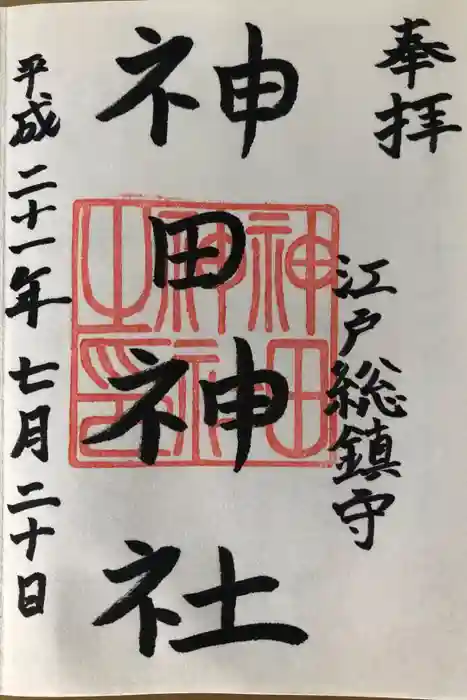 奉拝
江戸総鎮守
神田神社
神田神社之印
平成二十一年七月二十日